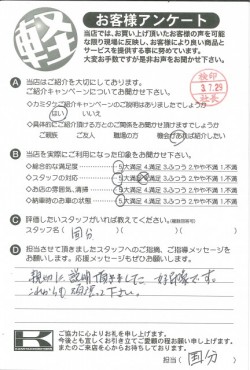 軽
お客様アンケート
当店では、お買い上げ頂いたお客様の声を可能
な限り現場に反映し、お客様により良い商品と
サービスを提供する事に努めています。
大変お手数ですが是非お声をお聞かせ下さい。
検印
3.7.29
社長
A 当店はご紹介を大切にしております。
ご紹介キャンペーンについてお聞かせ下さい。
◇カミタケご紹介キャンペーンのご説明はありましたでしょうか
はい いいえ
◇具体的にご紹介頂ける方とのご関係をお聞かせ頂けますでしょうか
ご親族 ご友人 職場の方 機会があれば紹介したい
B 当店を実際にご利用になった印象をお聞かせ下さい。
◇総合的な満足度 5.大満足 4.満足 3.ふつう 2.やや不満 1.不満
◇スタッフの対応 5.大満足 4.満足 3.ふつう 2.やや不満 1.不満
◇お店の雰囲気、清掃 5.大満足 4.満足 3.ふつう 2.やや不満 1.不満
◇納車時のお車の状態 5.大満足 4.満足 3.ふつう 2.やや不満 1.不満
C 評価したいスタッフがいれば教えてください。(複数回答可)
スタッフ名( 国分 )
D 担当させて頂きましたスタッフへのご指摘、ご指導メッセージを
お願いします。応援メッセージもぜひお願いします。
親切に説明頂きました。好印象です。
これからも頑張って下さい。
K
ご協力に心よりお礼を申し上げます。
今後とも宜しくお引き立てご愛顧の程お願い申し上げます。
またのご来店を心からお待ちしております。
担当( 国分 )